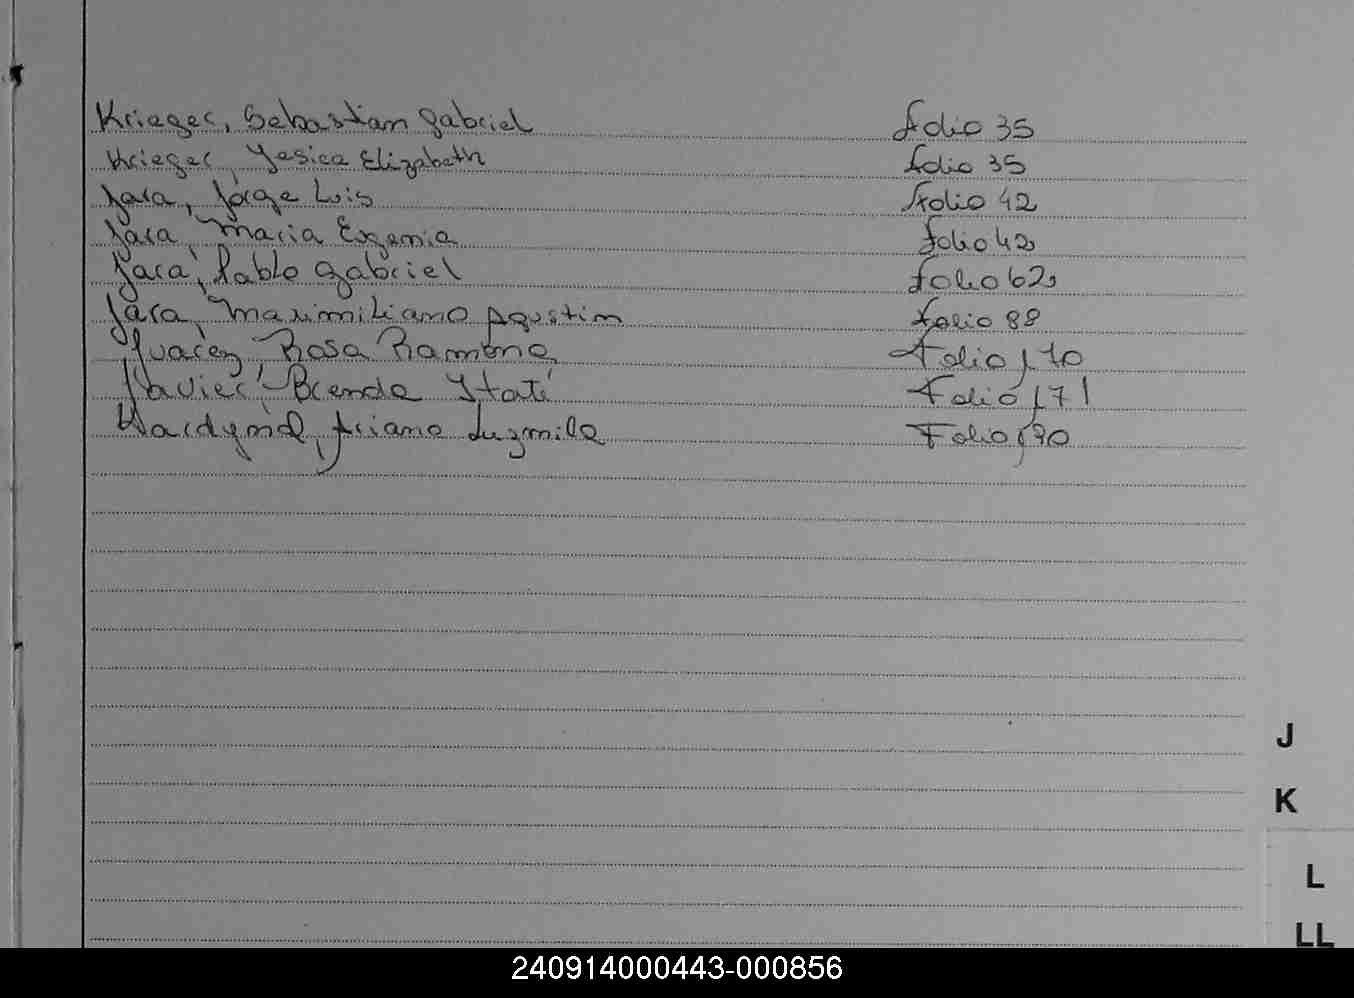 Krieger, Sebastian gabriel folio 35
Krieger, Yesica Elizabeth folio 35
Jara, Jorge Luis Folio 42
Jara, Maria Eugenia folio 42
Jara, Pablo gabriel folio 62
Jara, Maximiliano Agustin folio 88
Juarez, Rosa Ramona Folio 170
Javier, Brenda Itatí Folio 171
Folio
J
K
L
LL
240914000443-000856